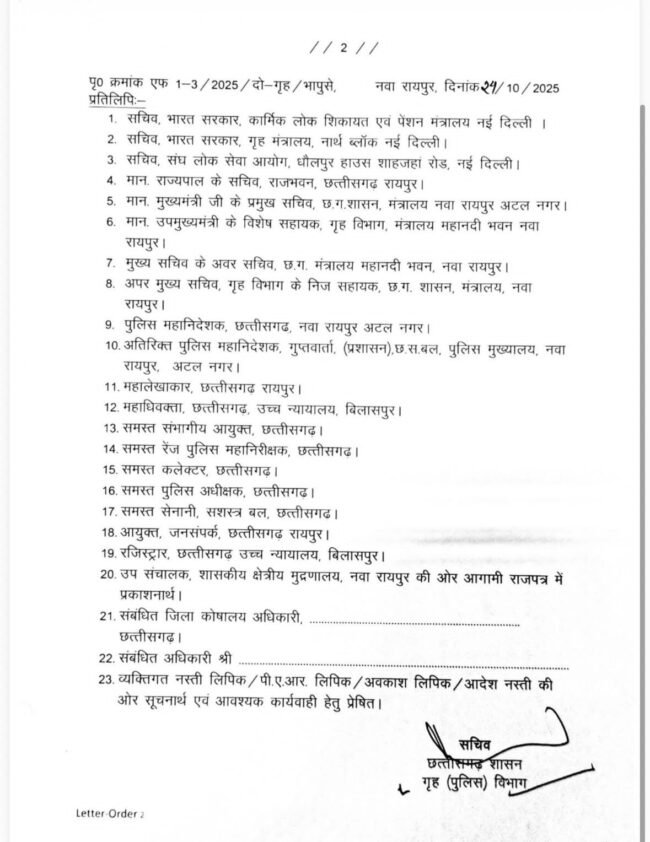 // 2 //
पृ0 क्रमांक एफ 1-3/2025/दो-गृह/भापुसे, नवा रायपुर, दिनांक 24/10/2025
प्रतिलिपिः-
1. सचिव, भारत सरकार, कार्मिक लोक शिकायत एवं पेंशन मंत्रालय नई दिल्ली ।
2. सचिव, भारत सरकार, गृह मंत्रालय, नार्थ ब्लॉक नई दिल्ली।
3. सचिव, संघ लोक सेवा आयोग, धौलपुर हाउस शाहजहां रोड, नई दिल्ली।
4. मान. राज्यपाल के सचिव, राजभवन, छत्तीसगढ़ रायपुर।
5. मान. मुख्यमंत्री जी के प्रमुख सचिव, छ.ग.शासन, मंत्रालय नवा रायपुर अटल नगर।
6. मान. उपमुख्यमंत्री के विशेष सहायक, गृह विभाग, मंत्रालय महानदी भवन नवा
रायपुर।
7. मुख्य सचिव के अवर सचिव, छ.ग. मंत्रालय महानदी भवन, नवा रायपुर।
8. अपर मुख्य सचिव, गृह विभाग के निज सहायक, छ.ग. शासन, मंत्रालय, नवा
रायपुर।
9. पुलिस महानिदेशक, छत्तीसगढ़, नवा रायपुर अटल नगर।
10. अतिरिक्त पुलिस महानिदेशक, गुप्तवार्ता, (प्रशासन),छ.स.बल, पुलिस मुख्यालय, नवा
रायपुर, अटल नगर।
11. महालेखाकार, छत्तीसगढ़ रायपुर।
12. महाधिवक्ता, छत्तीसगढ़, उच्च न्यायालय, बिलासपुर।
13. समस्त संभागीय आयुक्त, छत्तीसगढ़।
14. समस्त रेंज पुलिस महानिरीक्षक, छत्तीसगढ़।
15. समस्त कलेक्टर, छत्तीसगढ़।
16. समस्त पुलिस अधीक्षक, छत्तीसगढ़।
17. समस्त सेनानी, सशस्त्र बल, छत्तीसगढ़।
18. आयुक्त, जनसंपर्क, छत्तीसगढ़ रायपुर।
19. रजिस्ट्रार, छत्तीसगढ़ उच्च न्यायालय, बिलासपुर।
20. उप संचालक, शासकीय क्षेत्रीय मुद्रणालय, नवा रायपुर की ओर आगामी राजपत्र में
प्रकाशनार्थ।
21. संबंधित जिला कोषालय अधिकारी, ..................................................
छत्तीसगढ़।
22. संबंधित अधिकारी श्री ..................................................
23. व्यक्तिगत नस्ती लिपिक/पी.ए.आर. लिपिक/अवकाश लिपिक/आदेश नस्ती की
ओर सूचनार्थ एवं आवश्यक कार्यवाही हेतु प्रेषित।
सचिव
छत्तीसगढ़ शासन
गृह (पुलिस) विभाग
Letter-Order 2